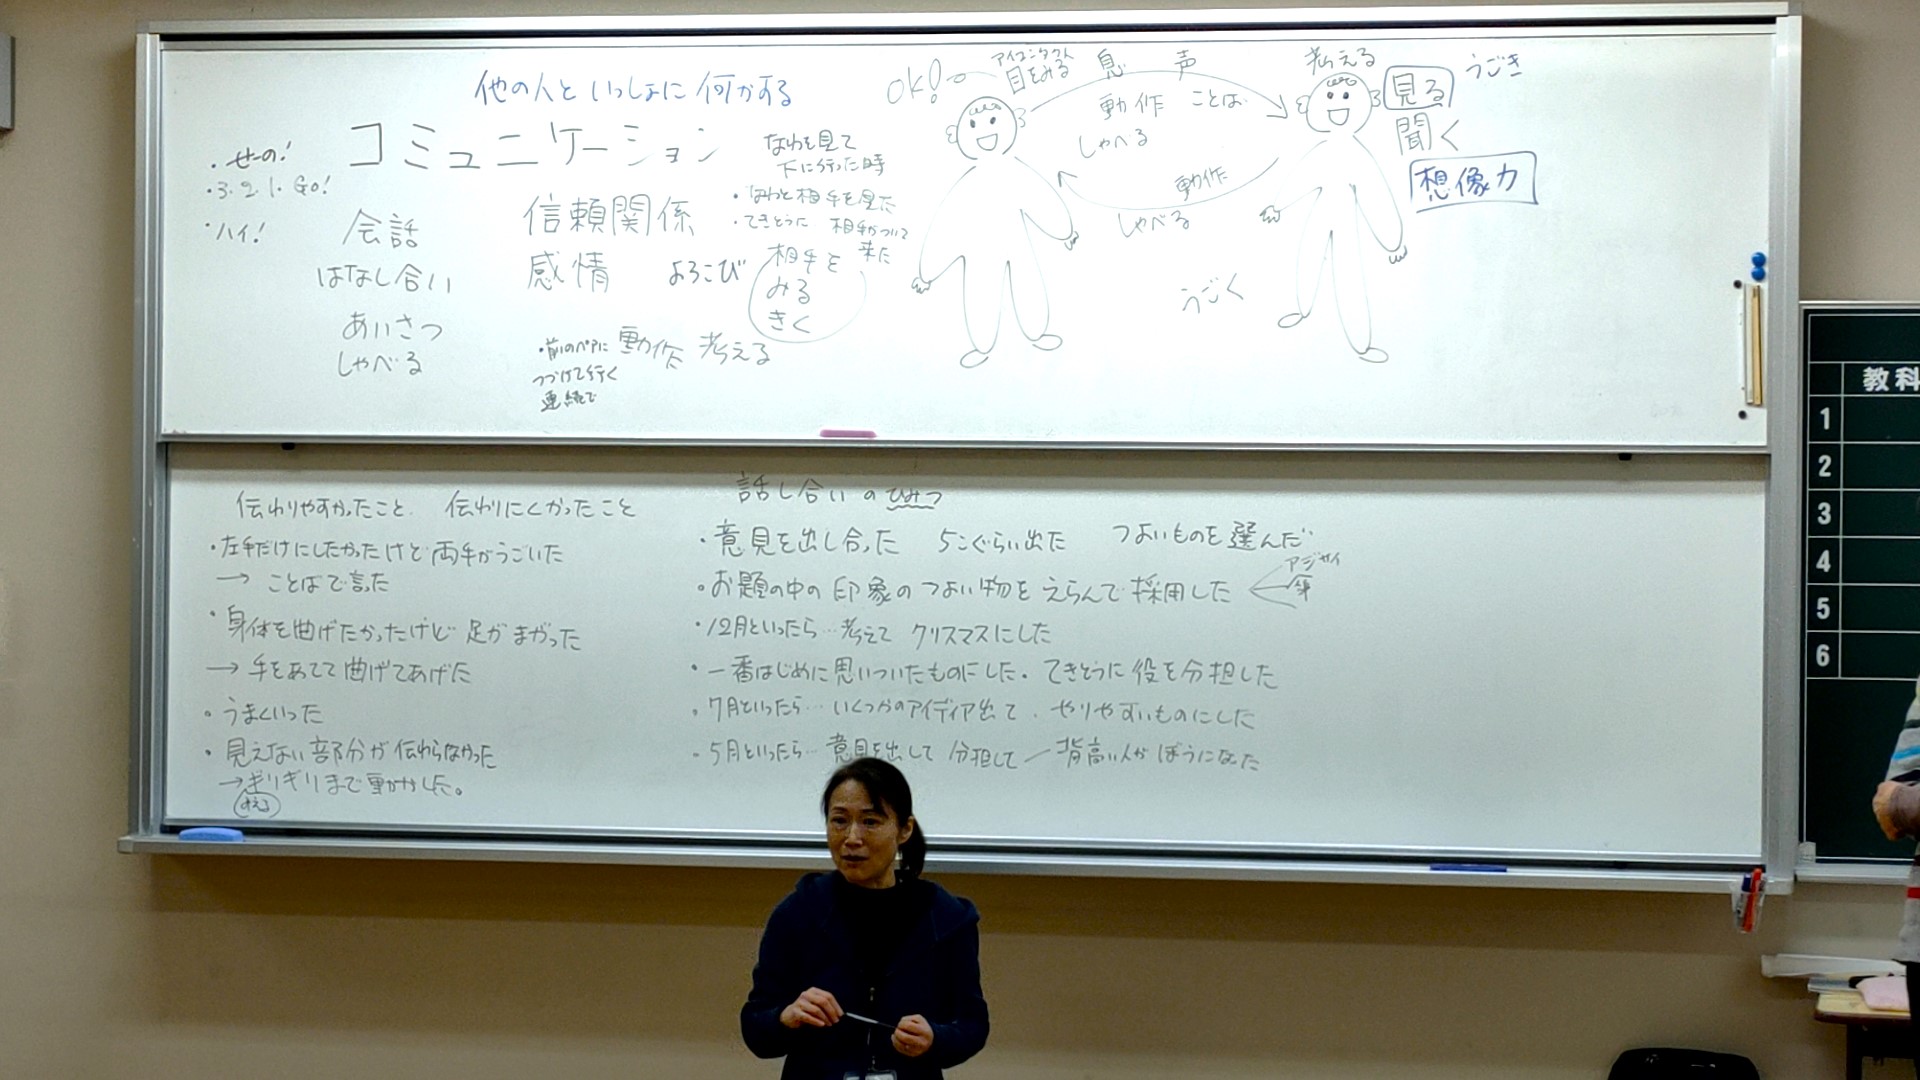 他の人といっしょに何かする
コミュニケーション
・せーの!
・3.2.1.Go!
・ハイ!
会話
はなし合い
あいさつ
しゃべる
信頼関係
感情 よろこび
・前のペアに
つづけて行く
連続で
動作 考える
なわを見て
下に行った時
・なわと相手を見た
・てきとうに 相手がついて
来た
相手を
みる
きく
OK!
アイコンタクト
目をみる
息 声
動作 ことば
しゃべる
動作
しゃべる
うごく
考える
見る うごき
聞く
想像力
伝わりやすかったこと. 伝わりにくかったこと
・左手だけにしたかったけど両手がうごいた
→ ことばで言った
・身体を曲げたかったけど足がまがった
→ 手をあてて曲げてあげた
・うまくいった
・見えない部分が伝わらなかった
→ギリギリまで動かした。
みえる
話し合いのひみつ
・意見を出し合った 5こぐらい出た つよいものを選んだ
・お題の中の印象のつよい物をえらんで採用した
アジサイ
傘
・12月といったら…考えて クリスマスにした
・一番はじめに思いついたものにした.てきとうに役を分担した
・7月といったら…いくつかのアイディア出て.やりやすいものにした
・5月といったら…意見を出して 分担して 背高い人がぼうになった
教科
1
2
3
4
5
6